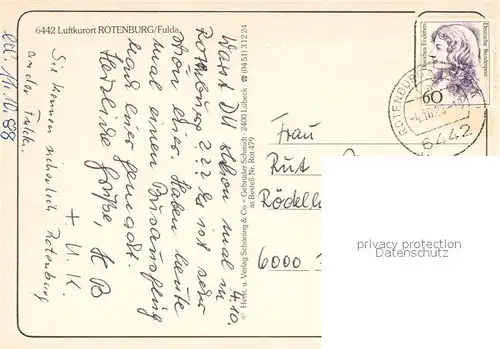 6442 Luftkurort ROTENBURG/Fulda
4.10.
Warst DU schon mal in
Rotenburg ??? Es ist sehr
schön hier. Haben heute
mal einen Busausflug
nach hier gemacht.
Herzliche Grüße,
+ U. K.
Sie kennen sicherlich Rotenburg
an der Fulda.
© Herst. u. Verlag Schöning & Co + Gebrüder Schmidt · 2400 Lübeck · ☎ (0451) 31224
as Bestell Nr. Rot 479
Deutsche Bundespost
60
ROTENBURG
6442
Frau
Rut
Rödelh
6000
privacy protection
AnsichtskartenVersand